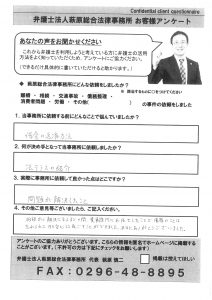 Confidential client questionnaire
弁護士法人萩原総合法律事務所 お客様アンケート
あなたの声をお聞かせください
これから弁護士を利用しようと考えている方に弁護士の活用
方法をよく知っていただくため、アンケートにご協力ください。
(できるだけ具体的に書いていただけると助かります。)
◆ 萩原総合法律事務所に何を依頼しましたか?
離婚・相続・交通事故・債務整理・
消費者問題・労働・その他( )の事件を依頼をした
1. 当事務所に依頼する前にどんなことで悩んでいましたか?
借金の返済方法
2. 何が決め手となって当事務所に依頼しましたか?
3. 実際に事務所に依頼して良かった点はどこですか?
問題が解決したこと
4. その他ご意見等ございましたら、ご記入ください。
アンケートのご協力ありがとうございます。こちらの問題を匿名でホームページに掲載する
ことがございます。(不許可の方は下記にチェックをお願いします)
弁護士法人萩原総合法律事務所 代表 萩原 慎二
掲載は控えてほしい
FAX:0296-48-8895